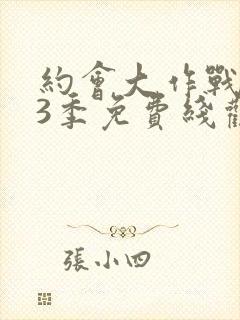 約會大作戰
3季免費綫觀
張小四